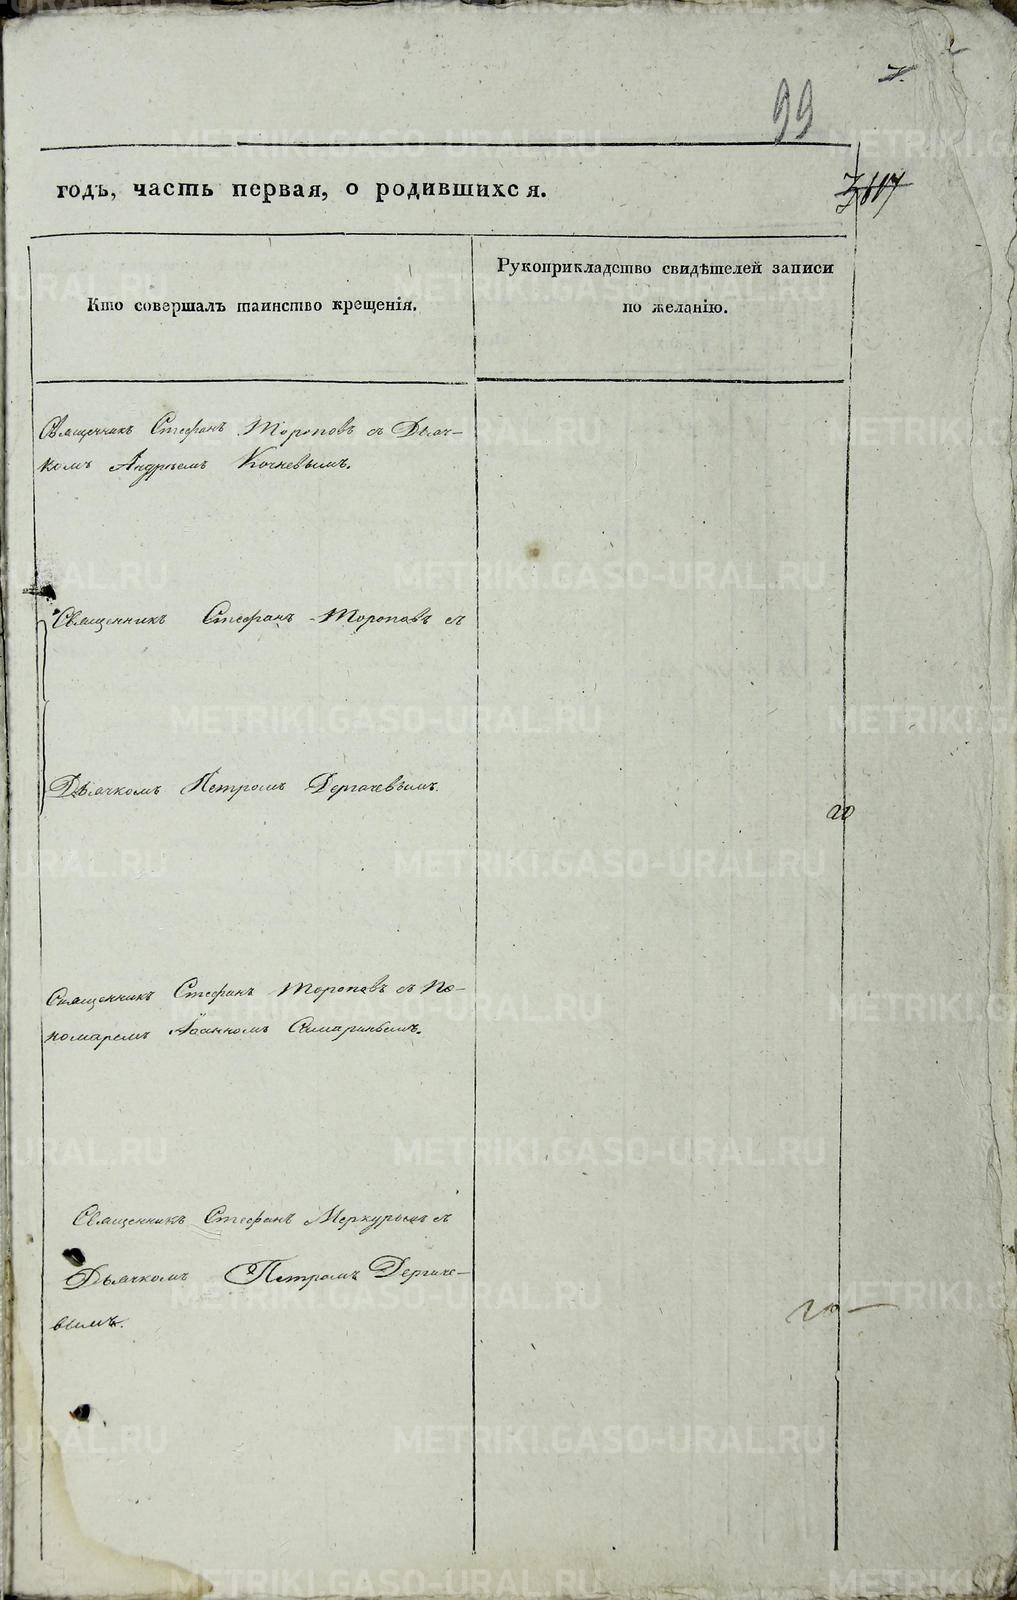 99
годъ, часть первая, о родившихся.
Кто совершалъ таинство крещенія.
Рукоприкладство свидѣтелей записи
по желанію.
Священникъ Стефанъ Тороповъ съ Дьяч-
комъ Андреемъ Кочневымъ.
Священникъ Стефанъ Тороповъ съ
Дьячкомъ Петромъ Дергачевымъ.
Священникъ Стефанъ Тороповъ съ По-
номаремъ Іоанномъ
Священникъ Стефанъ Меркурьевъ съ
Дьячкомъ Петромъ Дергаче-
вымъ.
METRIKI.GASO-URAL.RU